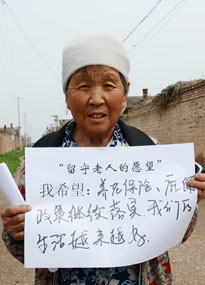 “留守老人的愿望”
我希望：养老保险、医保
政策继续落实，我们的
生活越来越好。